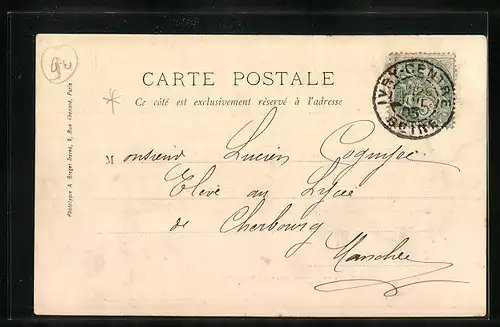 CARTE POSTALE
Ce côté est exclusivement réservé à l'adresse
IVRY-CENTRE
SEINE
Monsieur Lucien
Elève au Lycée
de Cherbourg
Manche
Phototypie A. Berger frères, 9, Rue Thénard, Paris